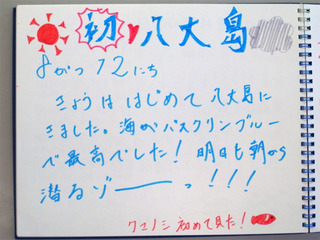 初 八丈島
8がつ12にち
きょうは はじめて 八丈島に
きました。海がバスクリンブルー
で最高でした！ 明日も朝から
潜るゾーーっ！！！
クエノミ初めて見た！